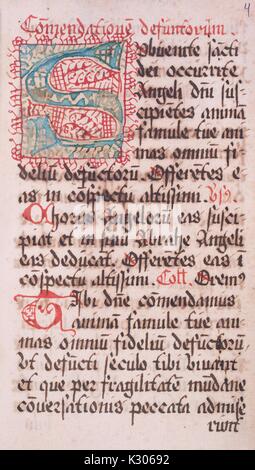 4
Comendationes defunctorum.
Subuenite sācti
dei occurrite
Angeli dn̄i sus
cipietes animā
famule tue ani
mas omniū fi
deliū defūctorū. Offeretes e
as in cōspectu altissimi.
Chorus angelorū eas susci
piat et in sinu Abrahe Angeli
eas deducat. Offeretes eas i
cōspectu altissimi. Coll. Oremꝰ
Tibi dn̄e comendamus
animā famule tue ani
mas omniū fideliū defūctorū
ut defūcti seculo tibi viuant
et que per fragilitatē mūdane
cōuersationis peccata admise
runt
alamy
alamy stock photo
K30692
www.alamy.com